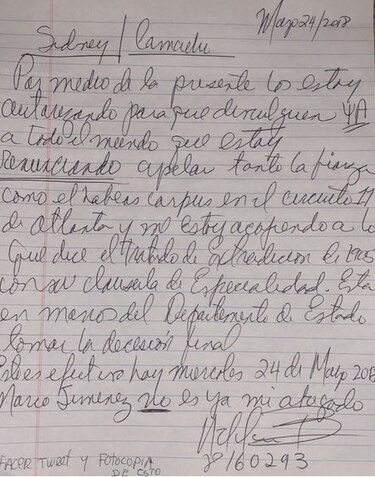 Mayo 24/2018
Sidney / Camacho
Por medio de la presente los estoy
autorizando para que divulguen YA
a todo el mundo que estoy
RENUNCIANDO apelar tanto la fianza
como el habeas corpus en el circuito 11
de atlanta y me estoy acogendo a lo
que dice el tratado de Extradicion de 1905
con su clausula de Especialidad. Esta
en manos del Departamento de Estado
tomar la decesión final
Esto es efectivo hoy miercoles 24 de Mayo 2018
Marco Jimenez no es ya mi abogado
78160293
FACER TWEET Y FOTOCOPIA
DE ESTO